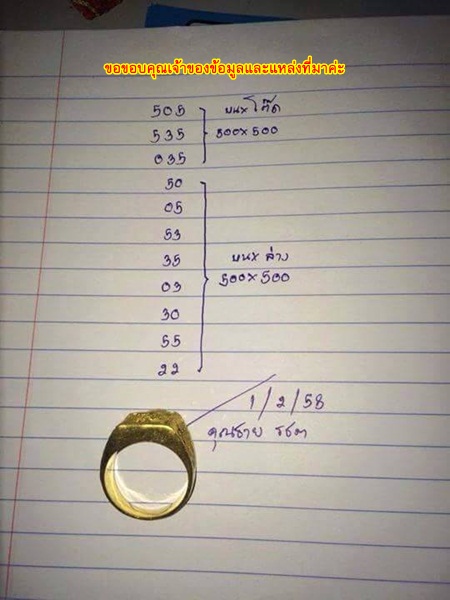 ขอขอบคุณเจ้าของข้อมูลและแหล่งที่มาค่ะ
505 บนx โต๊ด
535 500x500
035
50
05
53
35 บนx ล่าง
03 500x500
30
55
22
1/2/58
คุณชาย รชต